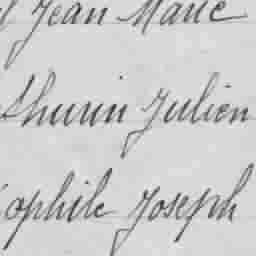 Jean Marie
thurin Julien
ophile Joseph